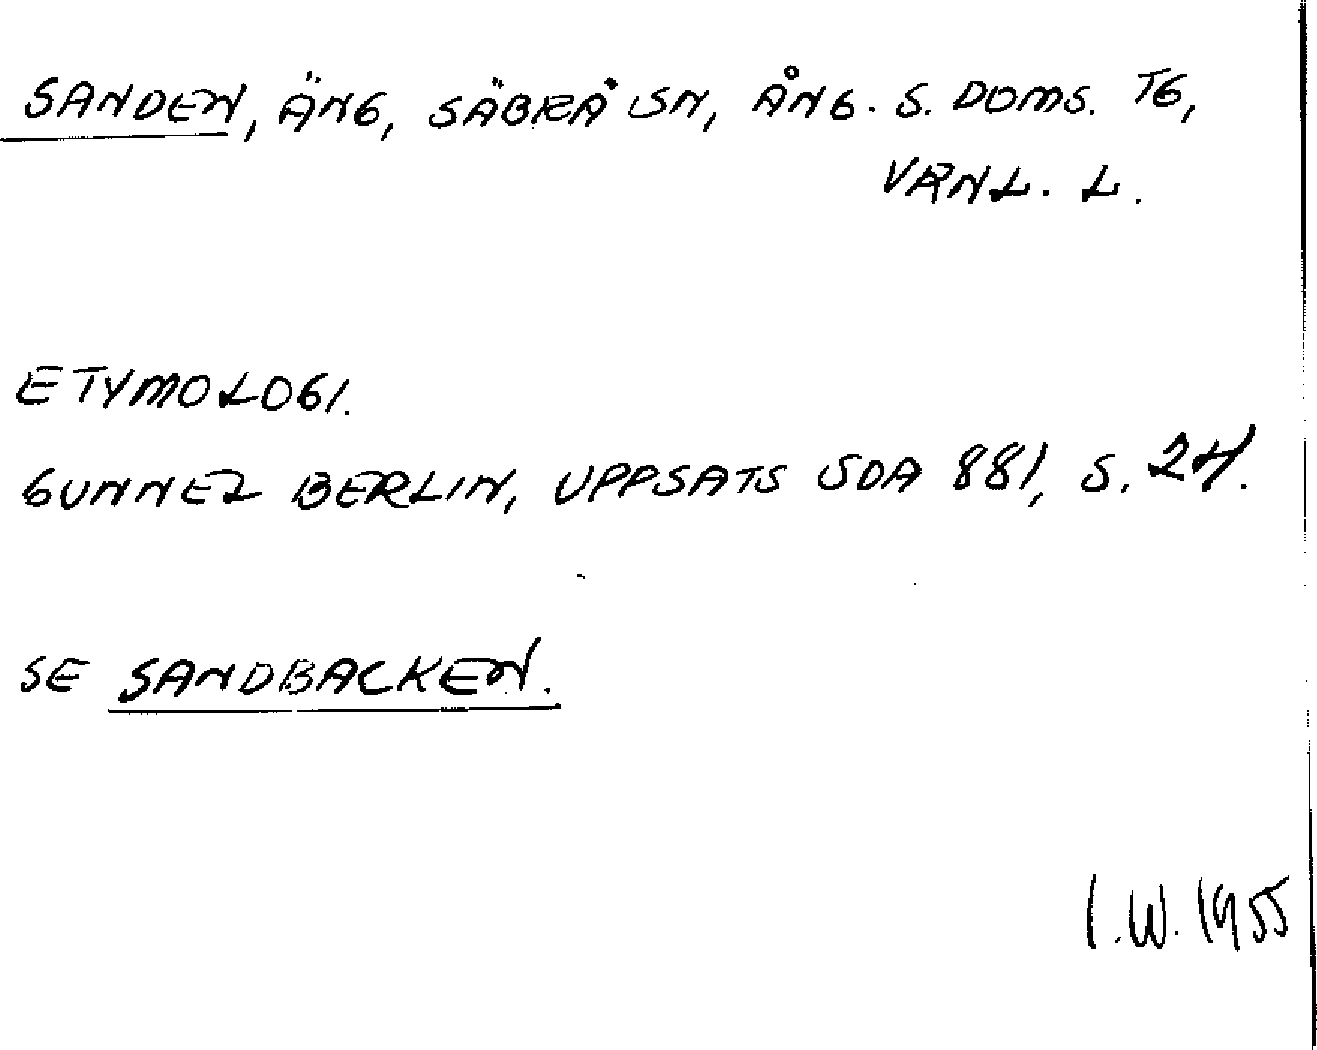 SANDEN, ÄNG, SÄBRÅ SN, ÅNG. S. DOMS. TG,
VRNL. L.
ETYMOLOGI.
GUNNEL BERLIN, UPPSATS SOA 881, S. 24.
SE SANDBACKEN.
I.W. 1955